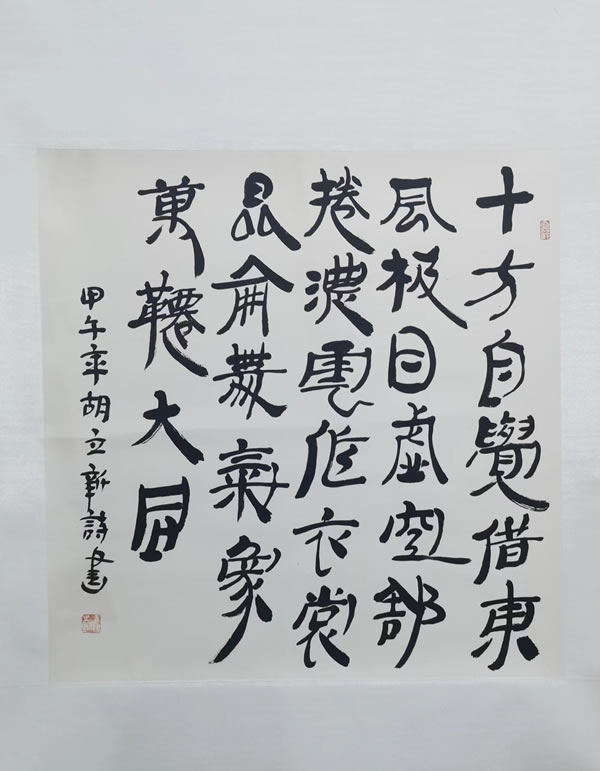 十方自覺借東
風极目虛空舒
捲濃雲作衣裳
昆侖舞氣象
萬韆大同
甲午年胡立新詩書